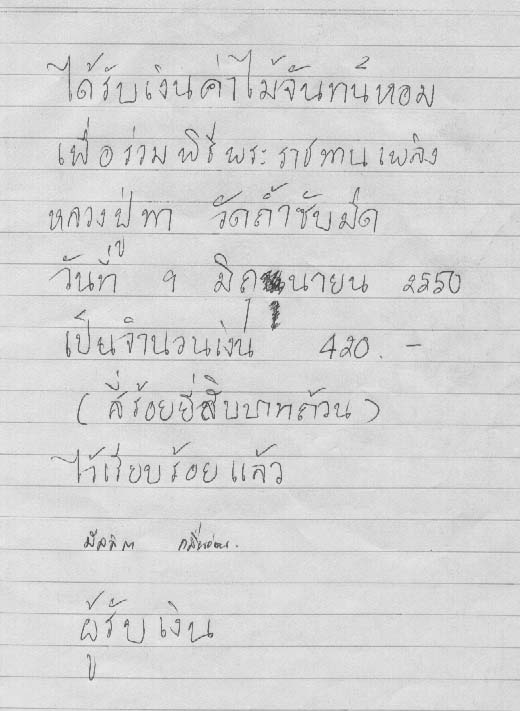 ได้รับเงินค่าไม้จันทน์หอม
เพื่อร่วมพิธีพระราชทานเพลิง
หลวงปู่ทา วัดถ้ำซับมืด
วันที่ ๑ มิถุนายน ๒๕๕0
เป็นจำนวนเงิน 420.-
(สี่ร้อยยี่สิบบาทถ้วน)
ไว้เรียบร้อยแล้ว
ผู้รับเงิน